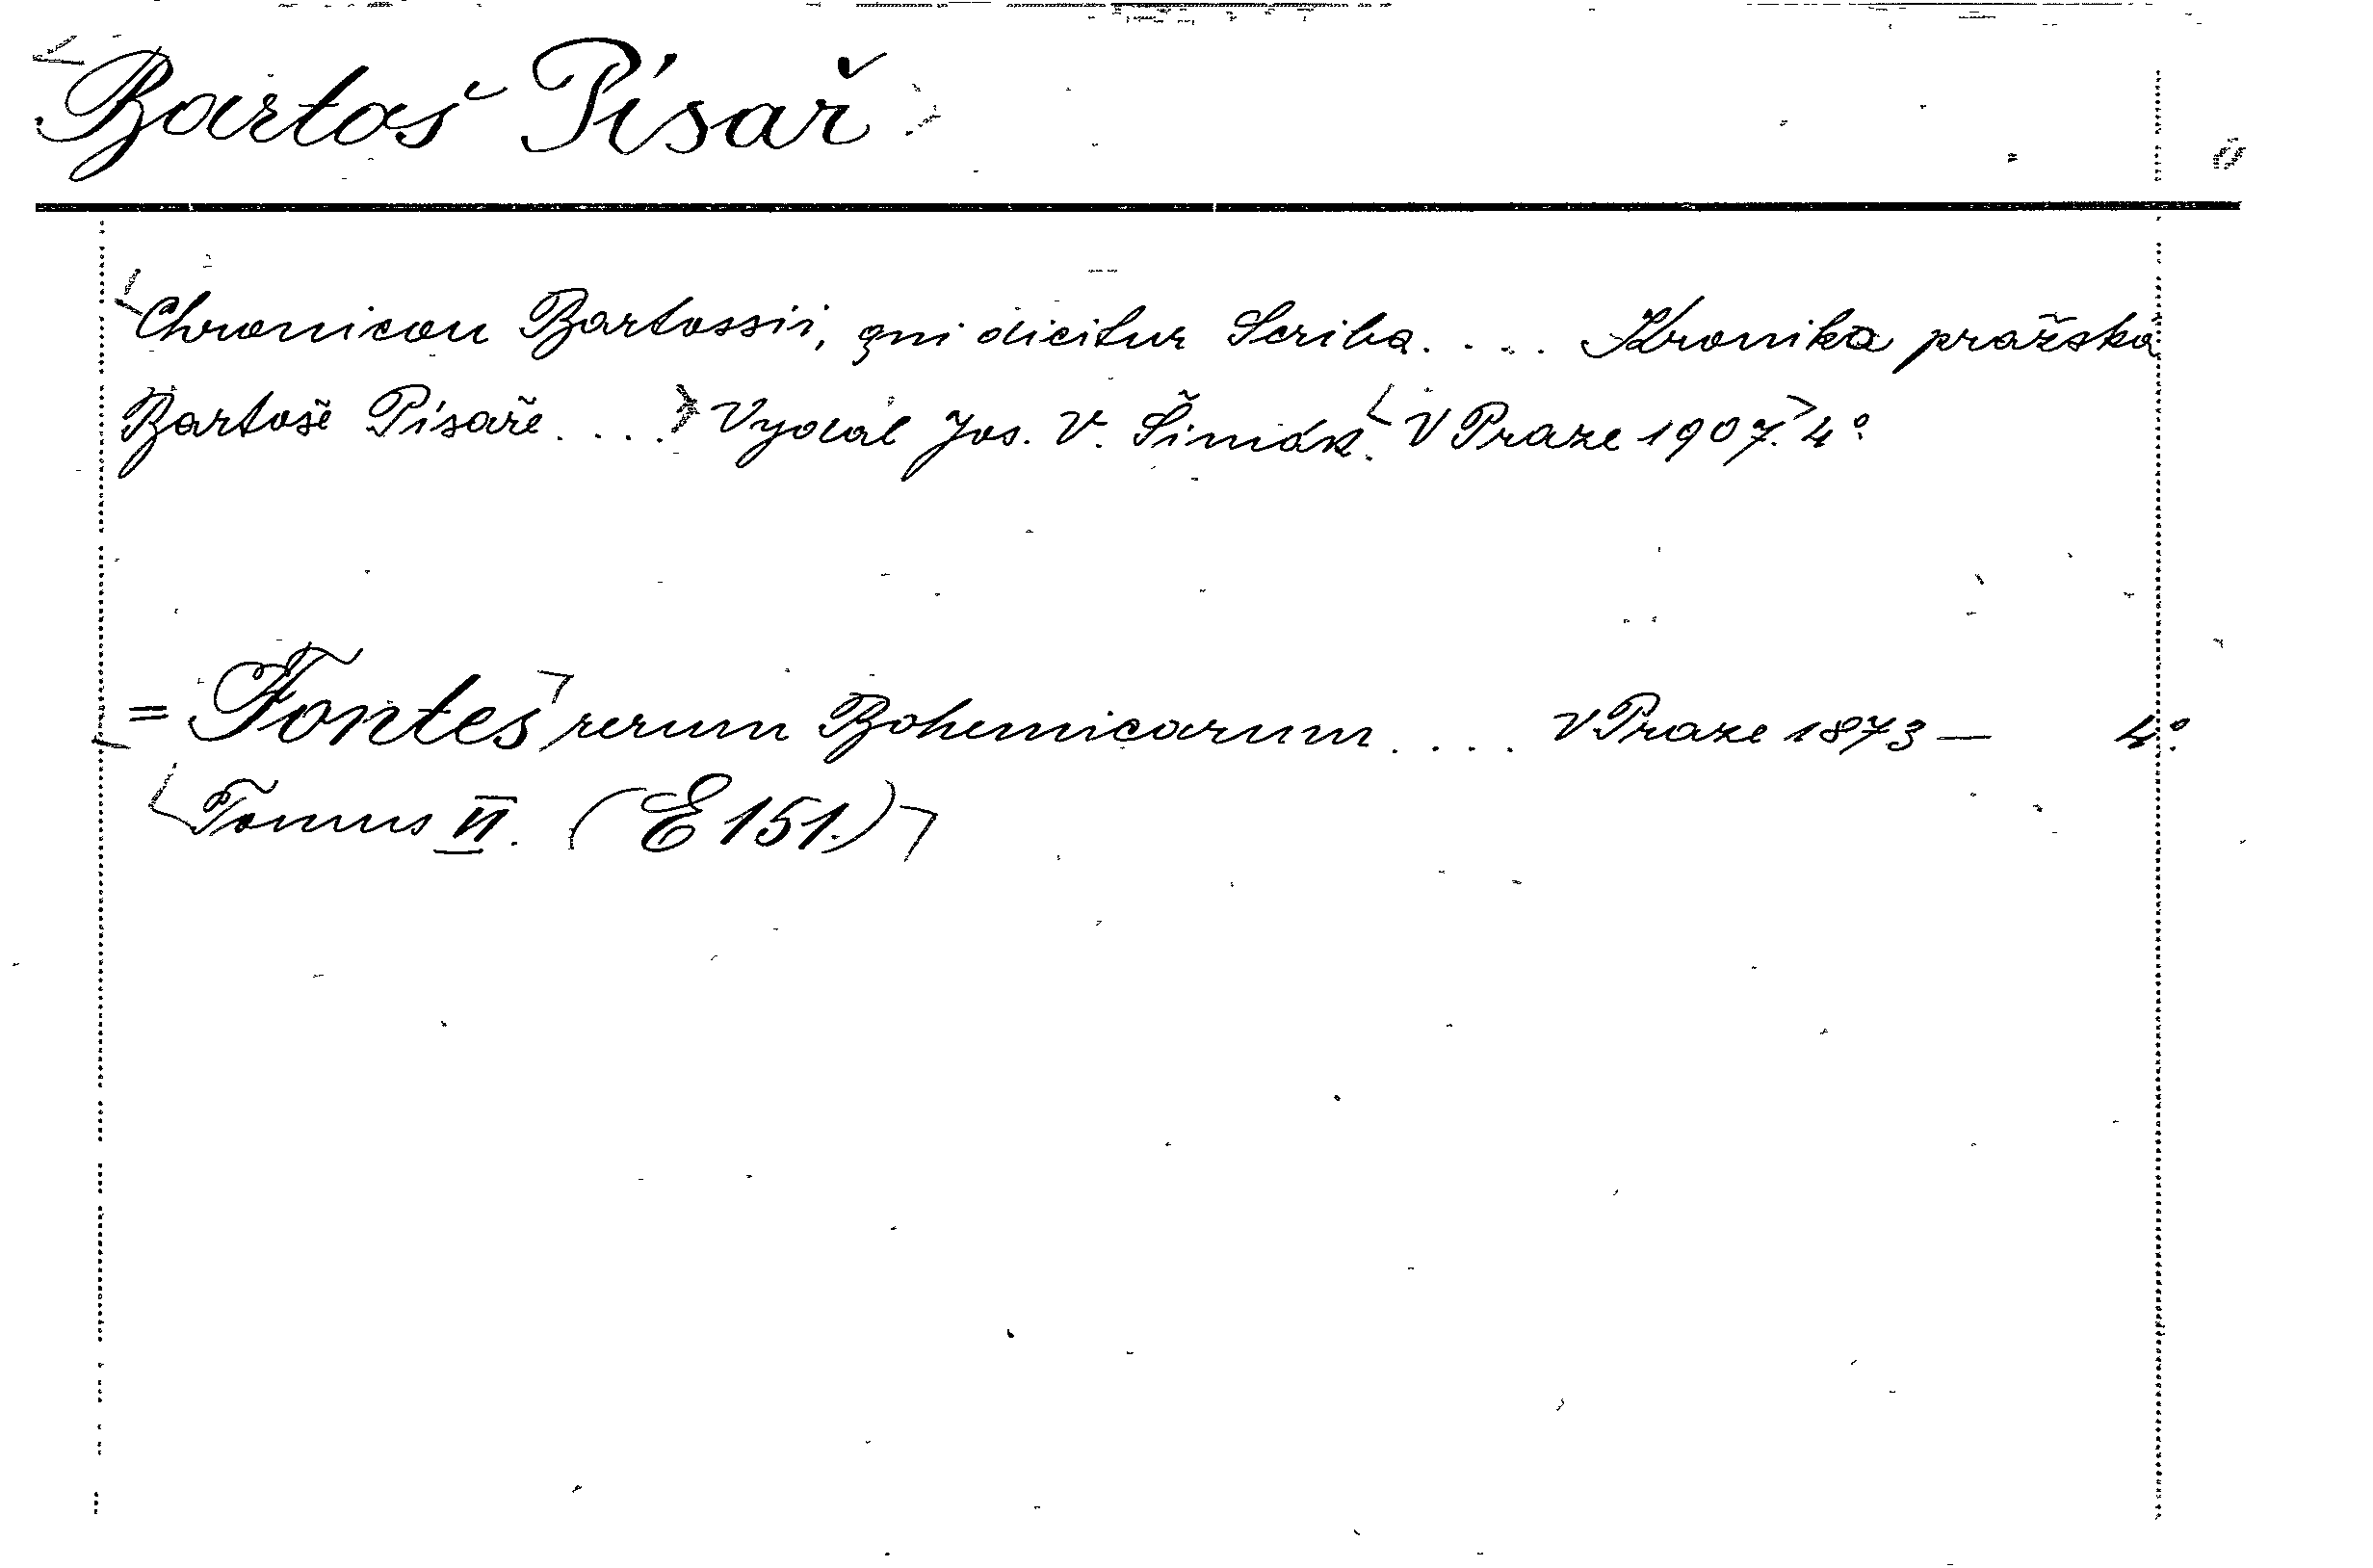 Bartoš Písař
Chronicon Bartossii, qui dicitur Scriba. . . . Kronika pražská
Bartoše Písaře. . . . Vydal Jos. V. Šimák. V Praze 1907. 4°
= Fontes rerum Bohemicarum. . . . V Praze 1873 — 4°.
Tomus VI. (E 151.)